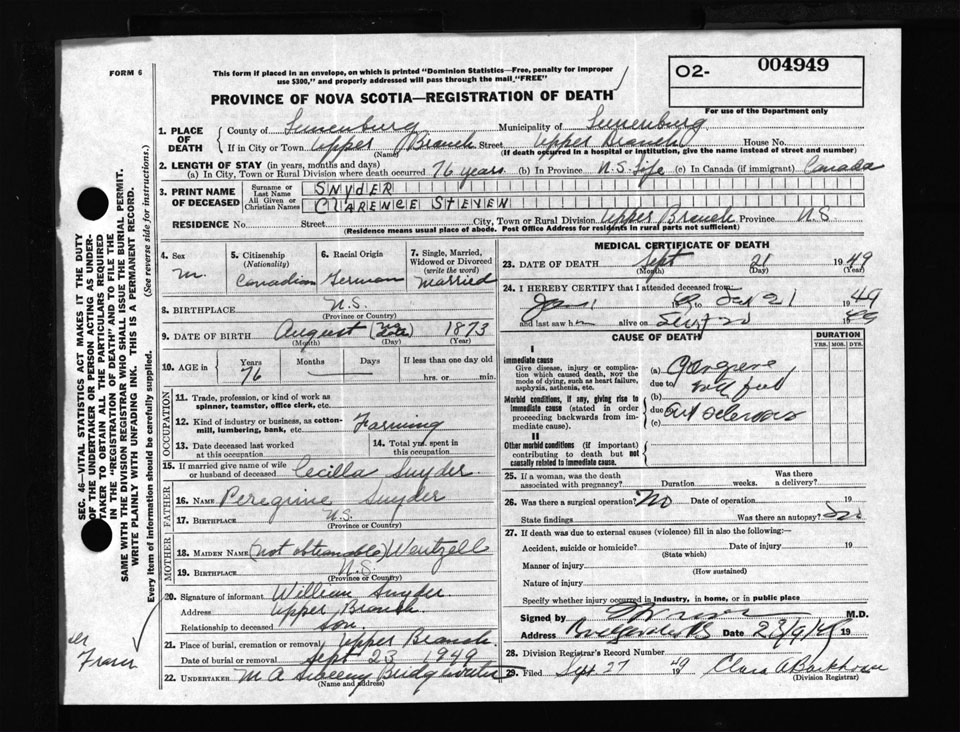 FORM 6
This form if placed in an envelope, on which is printed "Dominion Statistics—Free, penalty for improper
use $300," and properly addressed will pass through the mail "FREE"
O2- 004949
For use of the Department only
PROVINCE OF NOVA SCOTIA—REGISTRATION OF DEATH
1. PLACE OF DEATH
County of Lunenburg Municipality of Lunenburg
If in City or Town Upper Branch Street Upper Branch House No.
(Name) (If death occurred in a hospital or institution, give the name instead of street and number)
2. LENGTH OF STAY (in years, months and days)
(a) In City, Town or Rural Division where death occurred 76 years (b) In Province N.S. life (c) In Canada (if immigrant) Canada
3. PRINT NAME OF DECEASED
Surname or Last Name SNYDER
All Given or Christian Names CLARENCE STEVEN
RESIDENCE No. Street City, Town or Rural Division Upper Branch Province N.S
(Residence means usual place of abode. Post Office Address for residents in rural parts not sufficient)
4. Sex M.
5. Citizenship (Nationality) Canadian
6. Racial Origin German
7. Single, Married, Widowed or Divorced (write the word) Married
8. BIRTHPLACE N.S.
(Province or Country)
9. DATE OF BIRTH August 1873
(Month) (Day) (Year)
10. AGE in Years 76 Months — Days — If less than one day old
hrs. or min.
OCCUPATION
11. Trade, profession, or kind of work as
spinner, teamster, office clerk, etc.
12. Kind of industry or business, as cotton-
mill, lumbering, bank, etc. Farming
13. Date deceased last worked at this occupation
14. Total yrs. spent in this occupation
15. If married give name of wife
or husband of deceased Cecilla Snyder.
FATHER
16. NAME Peregrine Snyder
17. BIRTHPLACE N.S.
(Province or Country)
MOTHER
18. MAIDEN NAME (not obtainable) Wentzell
19. BIRTHPLACE N.S.
(Province or Country)
20. Signature of informant William Snyder.
Address Upper Branch.
Relationship to deceased son.
21. Place of burial, cremation or removal Upper Branch
Date of burial or removal Sept 23 1949
22. UNDERTAKER M A Sweeny Bridgewater
(Name and address)
MEDICAL CERTIFICATE OF DEATH
23. DATE OF DEATH Sept 21 1949
(Month) (Day) (Year)
24. I HEREBY CERTIFY that I attended deceased from
Jan 1 21 1949
and last saw him alive on Sept 20 1949
CAUSE OF DEATH
DURATION
YRS. MOS. DYS.
I
Immediate cause
Give disease, injury or complica-
tion which caused death, NOT the
mode of dying, such as heart failure,
asphyxia, asthenia, etc.
(a) Gangrene
due to
(b)
Morbid conditions, if any, giving rise to
immediate cause (stated in order
proceeding backwards from im-
mediate cause).
due to
(c)
II
Other morbid conditions (if important)
contributing to death but not
causally related to immediate cause.
25. If a woman, was the death
associated with pregnancy? Duration weeks. Was there a delivery?
26. Was there a surgical operation? No Date of operation 19
State findings Was there an autopsy?
27. If death was due to external causes (violence) fill in also the following:
Accident, suicide or homicide? Date of injury 19
(State which)
Manner of injury
(How sustained)
Nature of injury
Specify whether injury occurred in industry, in home, or in public place
Signed by M.D.
Address Date 23/9/49 19
28. Division Registrar's Record Number
29. Filed Sept 27 1949 Clara A Barkhouse
(Division Registrar)
SEC. 46—VITAL STATISTICS ACT MAKES IT THE DUTY
OF THE UNDERTAKER OR PERSON ACTING AS UNDER-
TAKER TO OBTAIN ALL THE PARTICULARS REQUIRED
IN THE "REGISTRATION OF DEATH" AND TO FILE THE
SAME WITH THE DIVISION REGISTRAR WHO SHALL ISSUE THE BURIAL PERMIT.
WRITE PLAINLY WITH UNFADING INK. THIS IS A PERMANENT RECORD.
Every item of information should be carefully supplied. (See reverse side for instructions.)